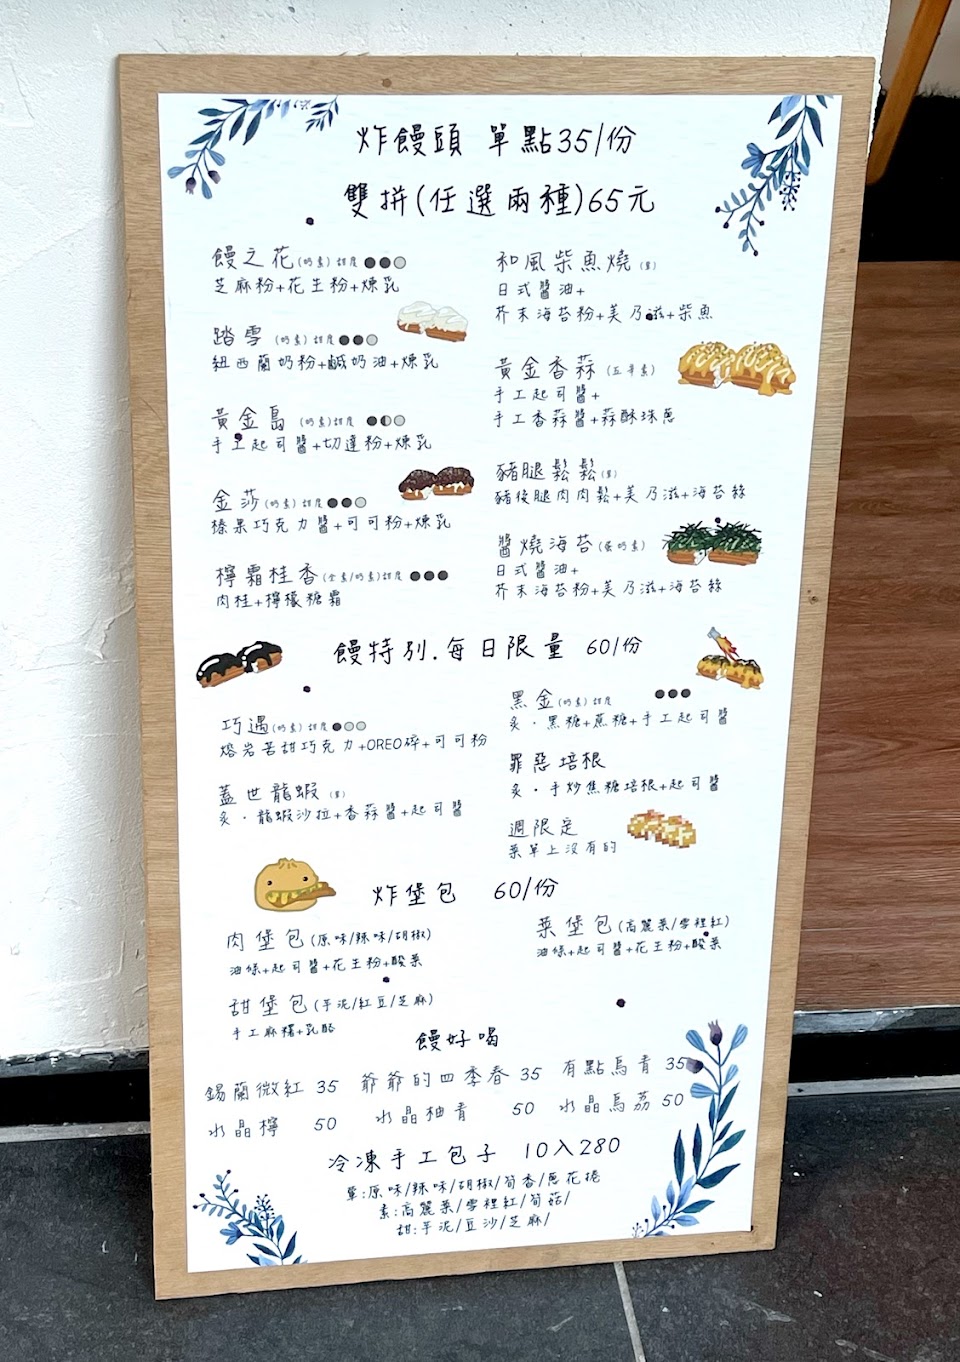 炸饅頭 單點35/份
雙拼(任選兩種)65元
饅之花(奶素)甜度
芝麻粉+花生粉+煉乳
踏雪(奶素)甜度
紐西蘭奶粉+鹹奶油+煉乳
黃金島(奶素)甜度
手工起司醬+切達粉+煉乳
金莎(奶素)甜度
榛果巧克力醬+可可粉+煉乳
檸霜桂香(全素/奶素)甜度
肉桂+檸檬糖霜
和風柴魚燒(葷)
日式醬油+
芥末海苔粉+美乃滋+柴魚
黃金香蒜(五辛素)
手工起司醬+
手工香蒜醬+蒜酥珠蔥
豬腿鬆鬆(葷)
豬後腿肉肉鬆+美乃滋+海苔絲
醬燒海苔(蛋奶素)
日式醬油+
芥末海苔粉+美乃滋+海苔絲
饅特別.每日限量 60/份
巧遇(奶素)甜度
熔岩苦甜巧克力+OREO碎+可可粉
蓋世龍蝦(葷)
炙·龍蝦沙拉+香蒜醬+起司醬
黑金(奶素)甜度
炙·黑糖+蔗糖+手工起司醬
罪惡培根
炙·手炒焦糖培根+起司醬
週限定
菜單上沒有的
炸堡包 60/份
肉堡包(原味/辣味/胡椒)
油條+起司醬+花生粉+酸菜
甜堡包(芋泥/紅豆/芝麻)
手工麻糬+乳酪
菜堡包(高麗菜/雪裡紅)
油條+起司醬+花生粉+酸菜
饅好喝
錫蘭微紅 35 爺爺的四季春 35 有點烏青 35
水晶檸 50 水晶柚青 50 水晶烏荔 50
冷凍手工包子 10入280
葷:原味/辣味/胡椒/筍香/蔥花捲
素:高麗菜/雪裡紅/筍菇/
甜:芋泥/豆沙/芝麻/